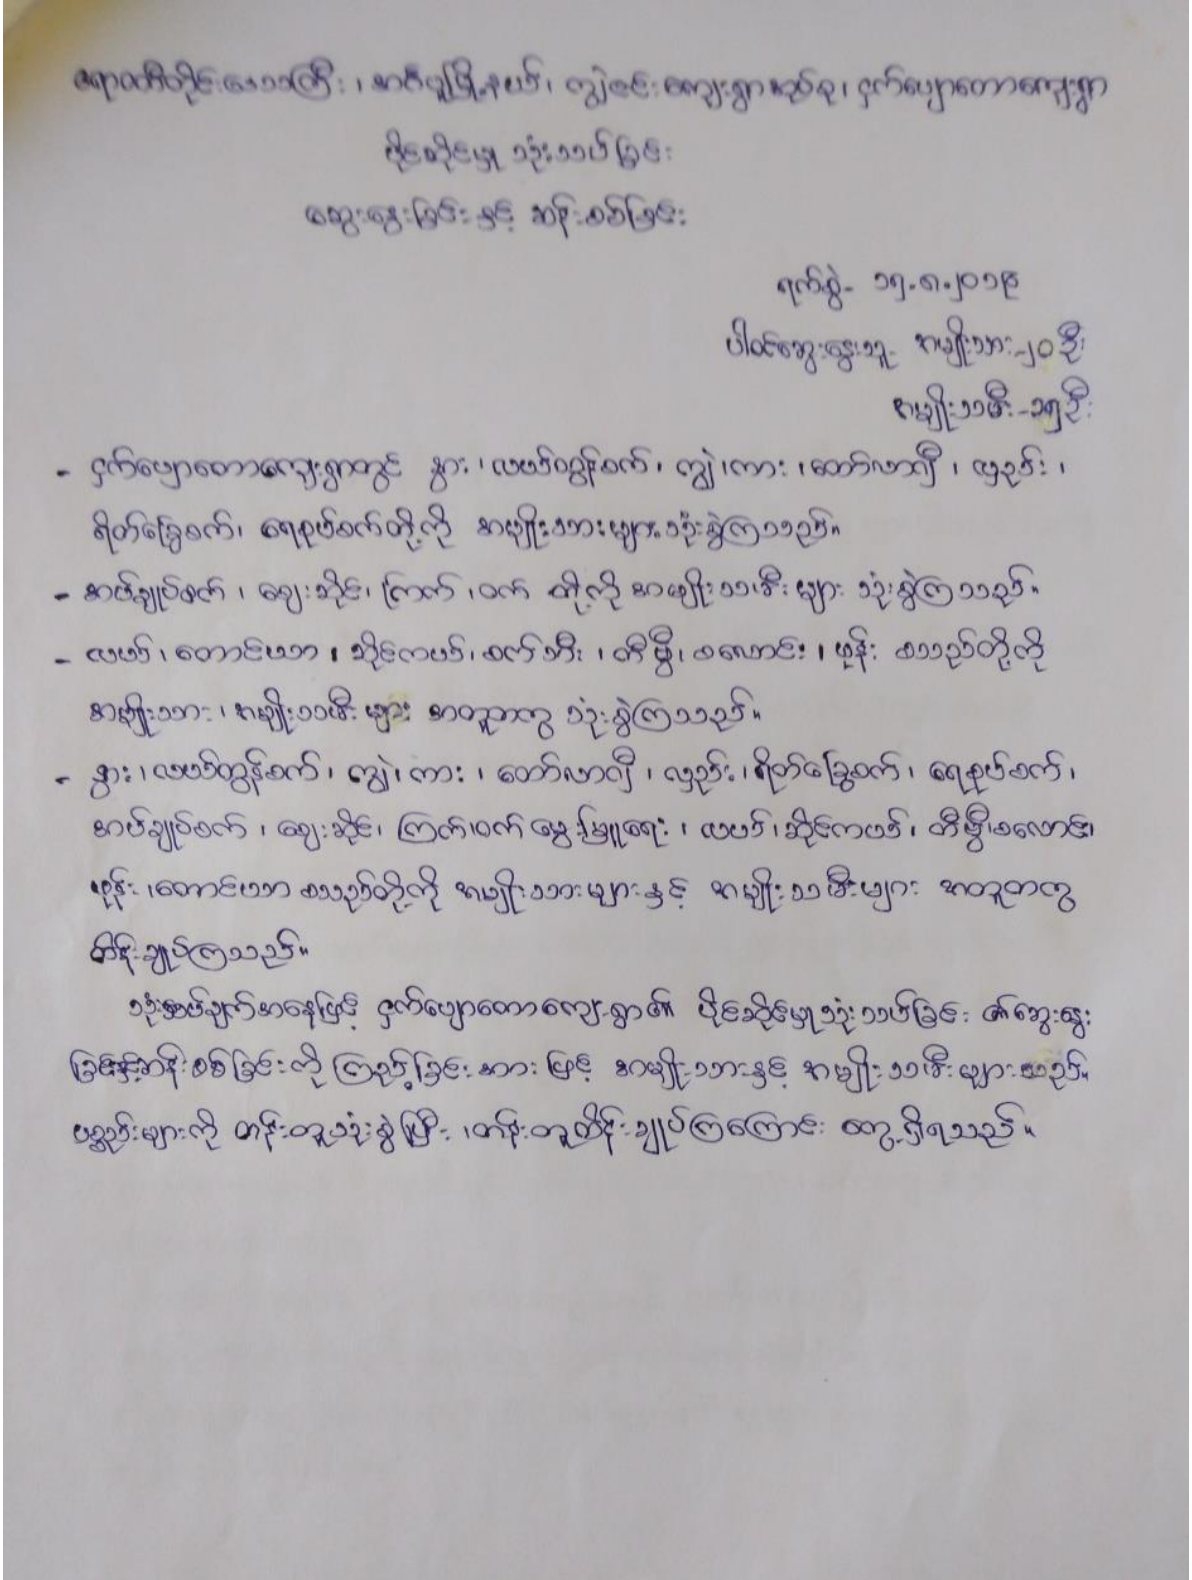 ဧရာဝတီတိုင်းဒေသကြီး၊ အင်္ဂပူမြို့နယ်၊ ကျွဲဇင်းကျေးရွာအုပ်စု၊ ငှက်ပျောတောကျေးရွာ
ပိုင်ဆိုင်မှု သုံးသပ်ခြင်း
ဆွေးနွေးခြင်းနှင့် ဆန်းစစ်ခြင်း
ရက်စွဲ- ၁၅.၈.၂၀၁၉
ပါဝင်ဆွေးနွေးသူ- အမျိုးသား-၂၀ ဦး
အမျိုးသမီး-၁၅ဦး
- ငှက်ပျောတောကျေးရွာတွင် နွား၊ လယ်ထွန်စက်၊ ကျွဲ၊ ကား၊ ထော်လာဂျီ၊ လှည်း၊
ရိတ်ခြွေစက်၊ ရေစုပ်စက်တို့ကို အမျိုးသားများ သုံးစွဲကြသည်။
- အပ်ချုပ်စက်၊ ဈေးဆိုင်၊ ကြက်၊ ဝက် တို့ကို အမျိုးသမီးများ သုံးစွဲကြသည်။
- လယ်၊ တောင်ယာ၊ ဆိုင်ကယ်၊ စက်ဘီး၊ တီဗွီ၊ စလောင်း၊ ဖုန်း စသည်တို့ကို
အမျိုးသား၊ အမျိုးသမီးများ အတူတကွ သုံးစွဲကြသည်။
- နွား၊ လယ်ထွန်စက်၊ ကျွဲ၊ ကား၊ ထော်လာဂျီ၊ လှည်း၊ ရိတ်ခြွေစက်၊ ရေစုပ်စက်၊
အပ်ချုပ်စက်၊ ဈေးဆိုင်၊ ကြက်၊ဝက် မွေးမြူရေး၊ လယ်၊ ဆိုင်ကယ်၊ တီဗွီ၊စလောင်း၊
ဖုန်း၊ တောင်ယာ စသည်တို့ကို အမျိုးသားများနှင့် အမျိုးသမီးများ အတူတကွ
ထိန်းချုပ်ကြသည်။
သုံးသပ်ချက်အနေဖြင့် ငှက်ပျောတောကျေးရွာ၏ ပိုင်ဆိုင်မှုသုံးသပ်ခြင်း ၏ဆွေးနွေး
ခြင်းနှင့်ဆန်းစစ်ခြင်းကို ကြည့်ခြင်းအားဖြင့် အမျိုးသားနှင့် အမျိုးသမီးများသည်
ပစ္စည်းများကို တန်းတူသုံးစွဲပြီး၊ တန်းတူထိန်းချုပ်ကြကြောင်း တွေ့ရှိရသည်။